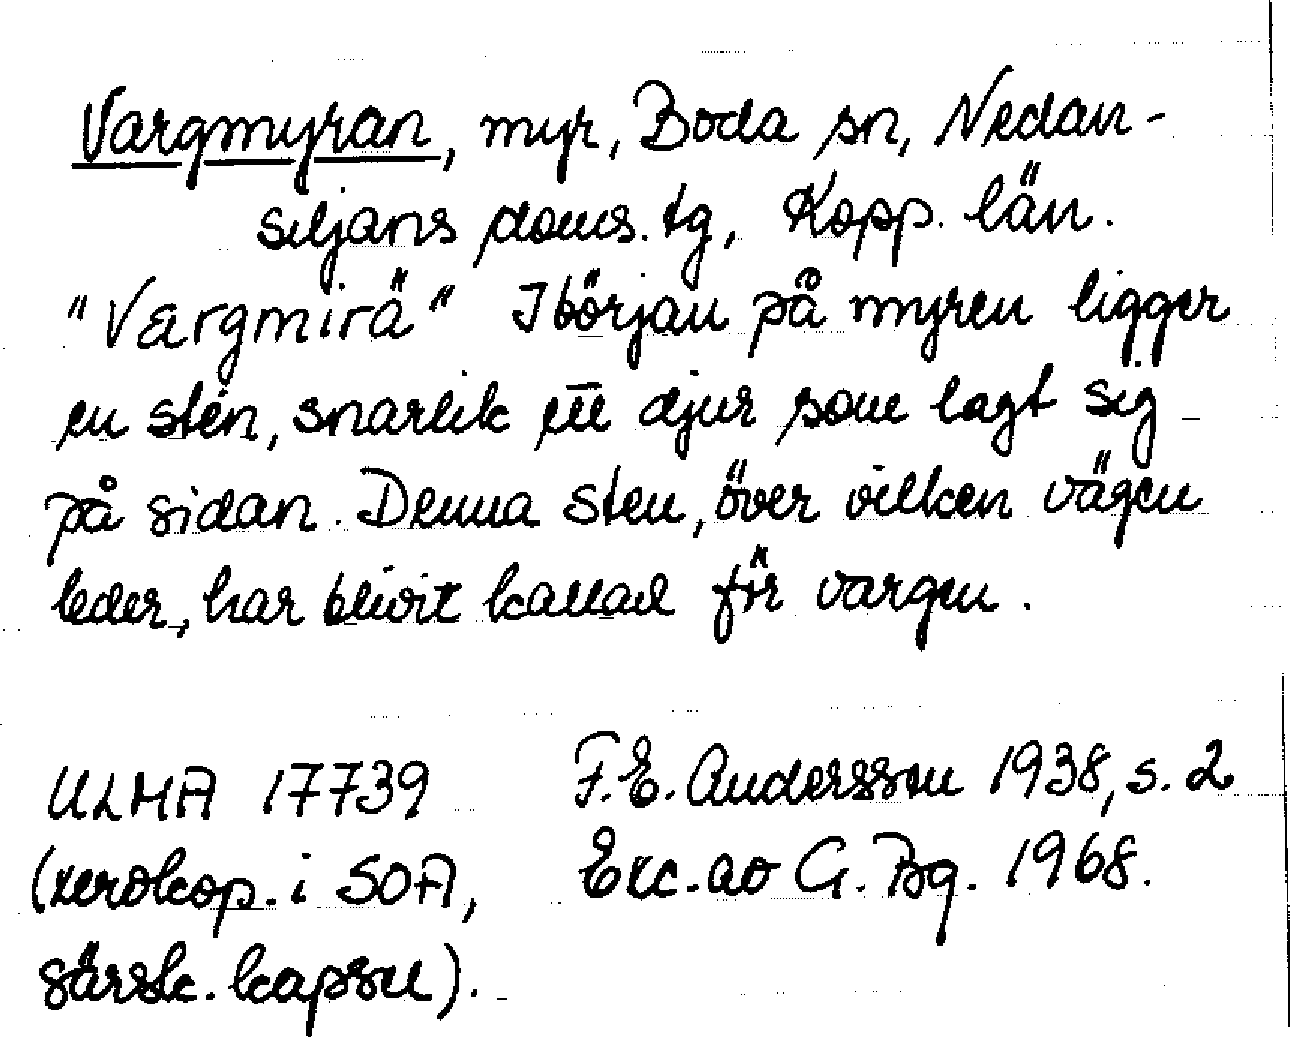 Vargmyran, myr, Boda sn, Nedan-
siljans doms. tg, Kopp. län.
"Værgmirä" I början på myren ligger
en sten, snarlik ett djur som lagt sig
på sidan. Denna sten, över vilken vägen
leder, har blivit kallad för vargen.
ULMA 17739 F.E. Andersson 1938, s. 2
(xerokop. i SOA, Exc. av G. Bg. 1968.
särsk. kapsel).